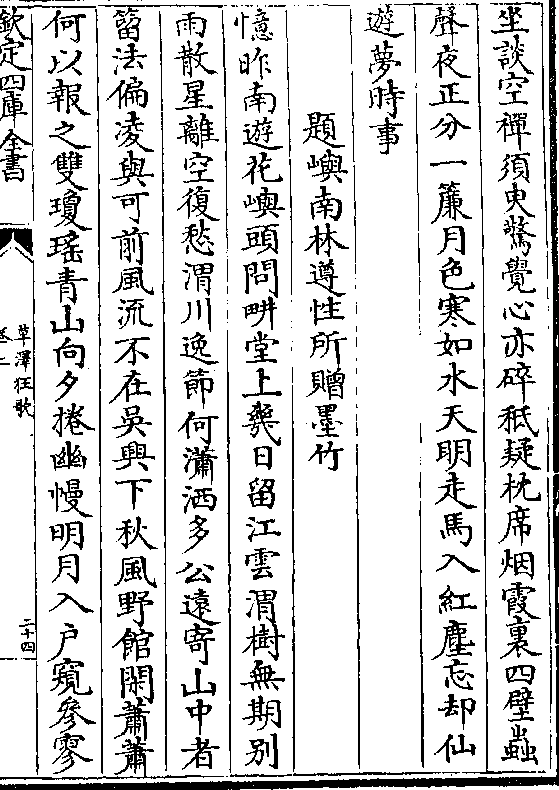 坐談空禪須臾驚覺心亦碎秪疑枕席烟霞裏四壁蟲
聲夜正分一簾月色寒如水天明走馬入紅塵忘却仙
遊夢時事
題嶼南林遵性所贈墨竹
憶昨南遊花嶼頭問畊堂上幾日留江雲渭樹無期別
雨散星離空復愁渭川逸節何瀟洒多公遠寄山中者
籀法偏凌與可前風流不在吳興下秋風野館閑蕭蕭
何以報之雙瓊瑤青山向夕捲幽幔明月入户窺參寥
欽定四庫全書
草澤狂歌
卷二
二十四